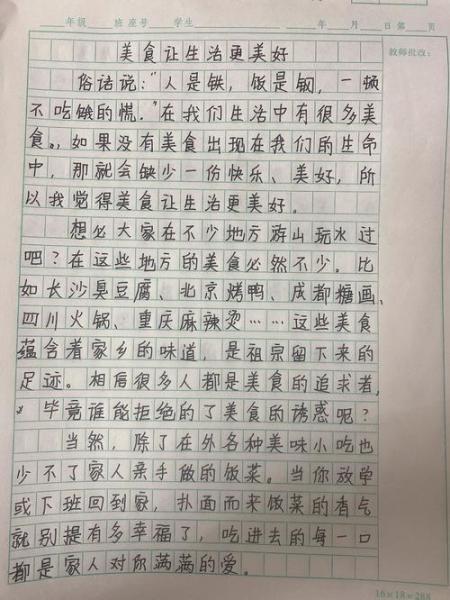 年级 班 座号 学生 年 月 日 第 页
教师批改：
美食让生活更美好
俗话说：“人是铁，饭是钢，一顿
不吃饿的慌.”在我们生活中有很多美
食。，如果没有美食出现在我们的生命
中，那就会缺少一份快乐、美好，所
以我觉得美食让生活更美好.
想必大家在不少地方游山玩水过
吧？在这些地方的美食必然不少。比
如长沙臭豆腐、北京烤鸭、成都糖画、
四川火锅、重庆麻辣烫……这些美食
蕴含着家乡的味道，是祖宗留下来的
足迹。相信很多人都是美食的追求者，
毕竟谁能拒绝的了美食的诱惑呢？
当然，除了在外各种美味小吃也
少不了家人亲手做的饭菜。当你放学
或下班回到家，扑面而来饭菜的香气
就别提有多幸福了，吃进去的每一口
都是家人对你满满的爱。
16×18=288